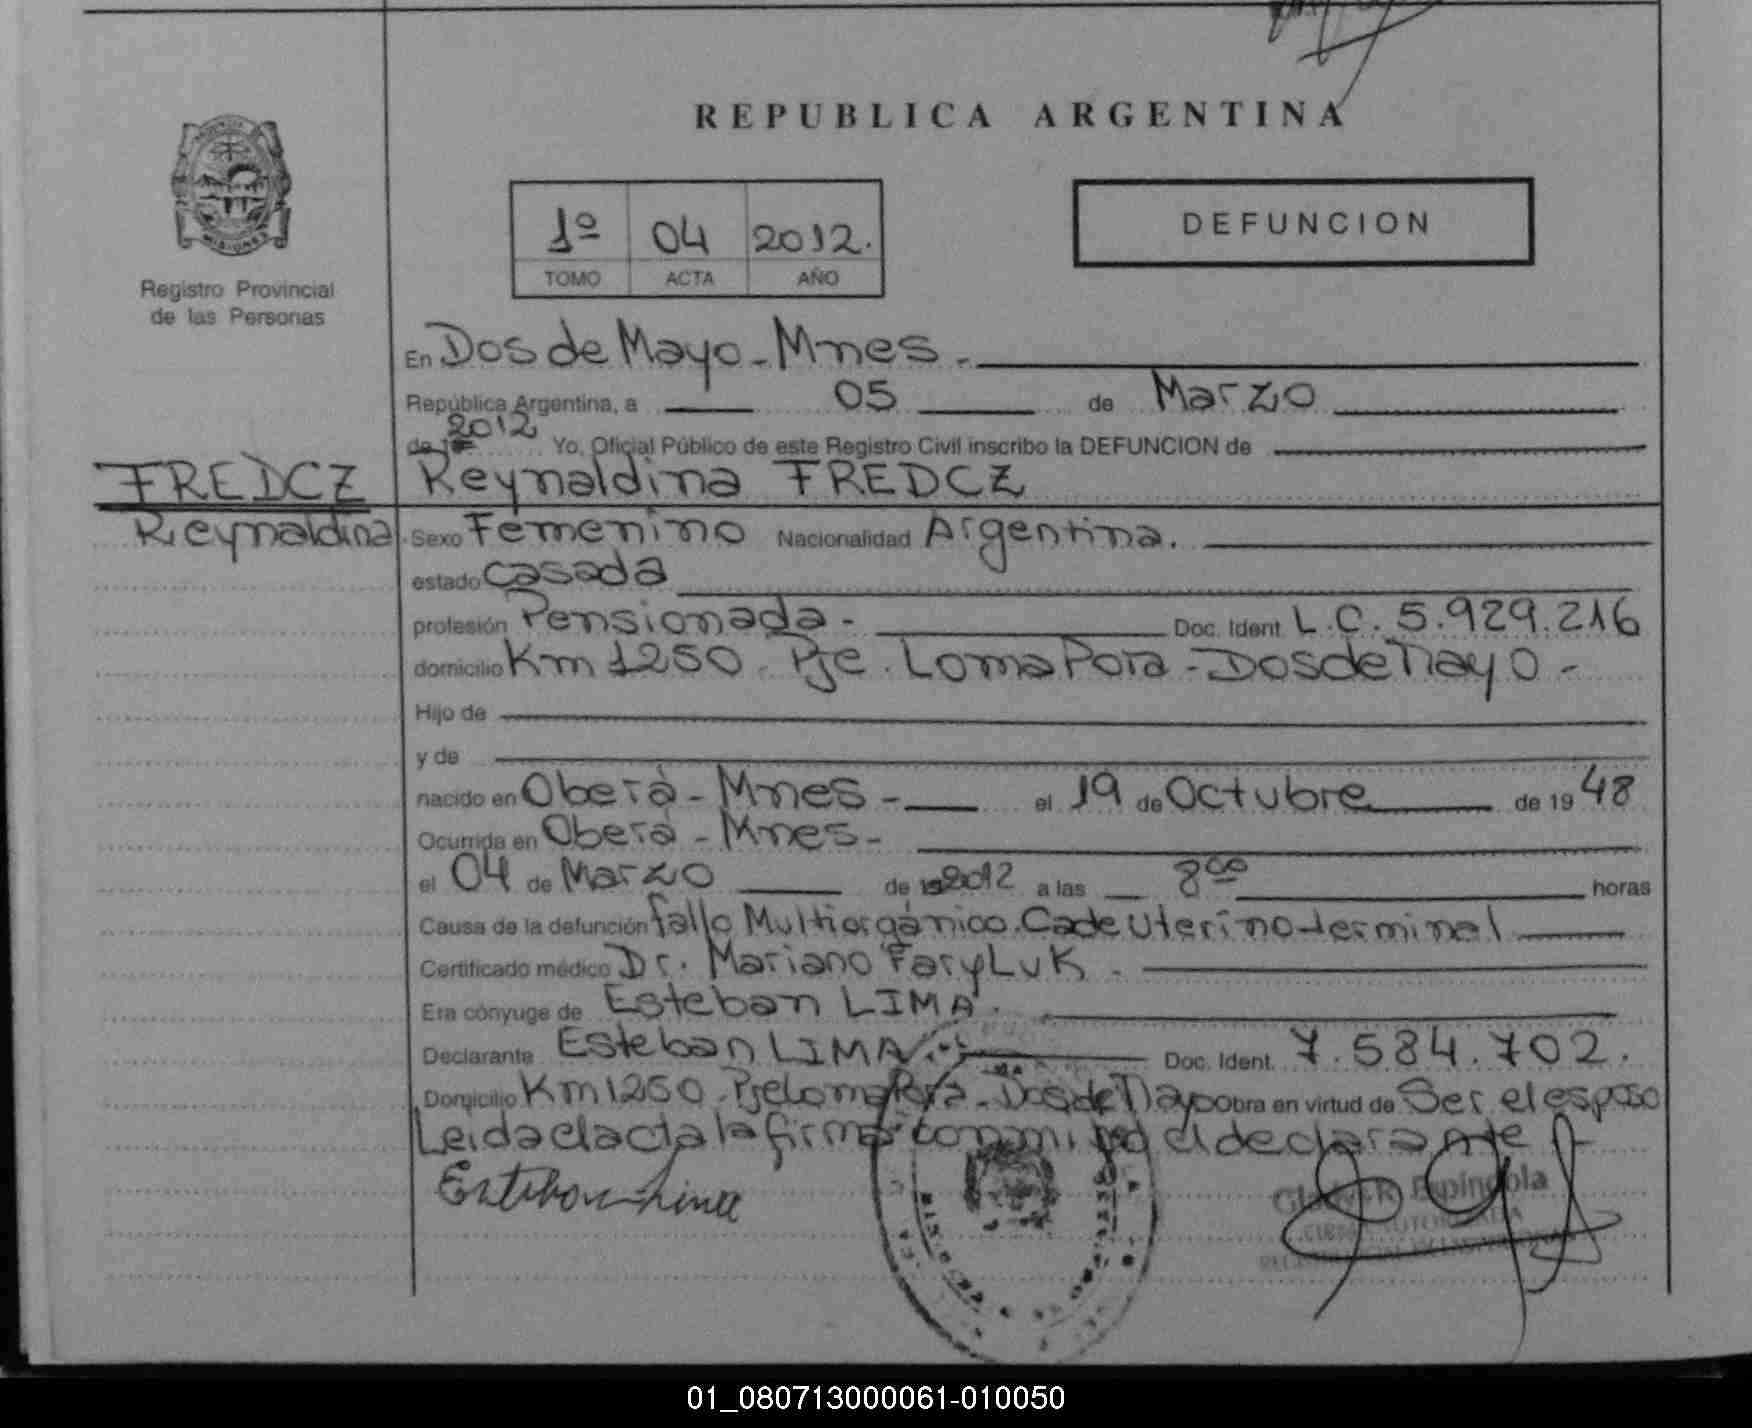 REPUBLICA ARGENTINA
MISIONES
Registro Provincial
de las Personas
1º 04 2012.
TOMO ACTA AÑO
DEFUNCION
En Dos de Mayo - Mnes -
República Argentina, a 05 de Marzo
de 2012 Yo, Oficial Público de este Registro Civil inscribo la DEFUNCION de
FREDCZ
Reynaldina
Reynaldina FREDCZ
Sexo Femenino Nacionalidad Argentina.
estado Casada
profesión Pensionada - Doc. Ident. L.C. 5.929.216
domicilio Km 1250 - Pje. Loma Pora - Dos de Mayo -
Hijo de
y de
nacido en Oberá - Mnes - el 19 de Octubre de 19 48
Ocurrida en Oberá - Mnes -
el 04 de Marzo de 2012 a las 8ºº horas
Causa de la defunción fallo Multiorgánico. Ca de Uterino terminal
Certificado médico Dr. Mariano FaryLuK.
Era cónyuge de Esteban LIMA.
Declarante Esteban LIMA Doc. Ident. 7.584.702.
Domicilio Km 1250 - Pje Loma Pora - Dos de Mayo Obra en virtud de Ser el esposo
Leida el acta la firma conmigo el declarante
Esteban Lima
Gladys R. Espindola
FIRMA AUTORIZADA
01_080713000061-010050